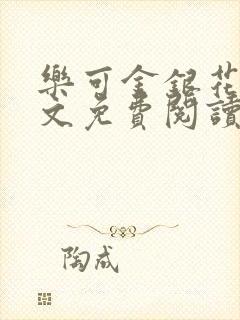 樂可金銀花
文免費閱讀
陶成